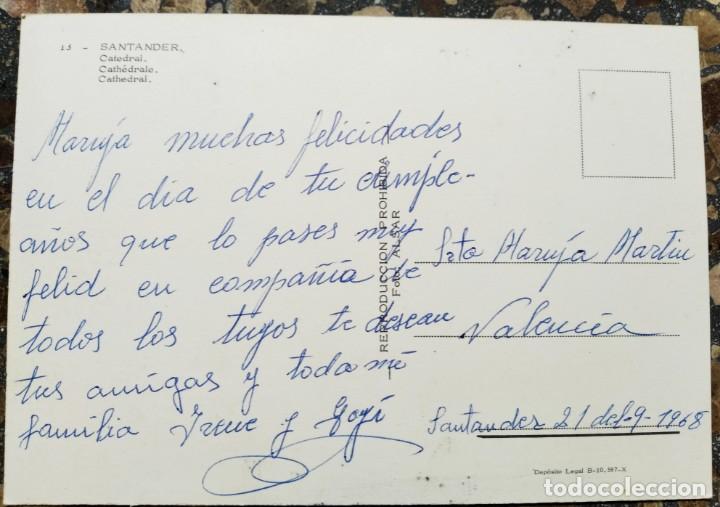 13 - SANTANDER.
Catedral.
Cathédrale.
Cathedral.
Maruja muchas felicidades
en el dia de tu cumple-
años que lo pases muy
felid en compañia de
todos los tuyos te desean
tus amigas y toda mi
familia Irene y Goyi
REPRODUCCION PROHIBIDA
Foto: ALSAR
Srta Maruja Martin
Valencia
Santander 21 del-9-1968
Depósito Legal B-10.597-X
todocoleccion.net